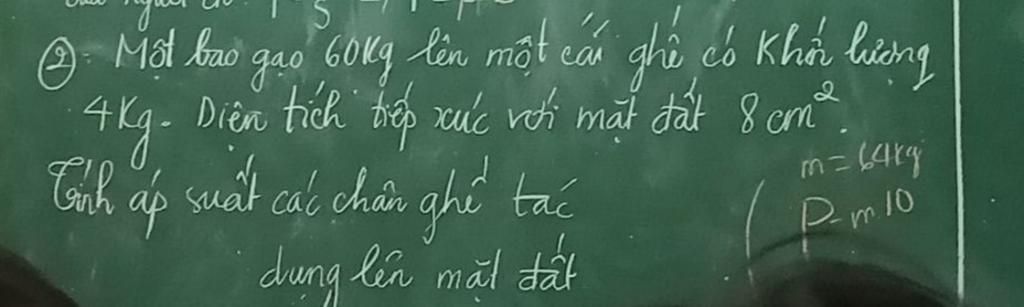 ② Một bao gạo 60kg lên một cái ghế có khối lượng
4kg. Diện tích tiếp xúc với mặt đất 8cm².
Tính áp suất các chân ghế tác
dụng lên mặt đất
m = 64kg
P = m 10